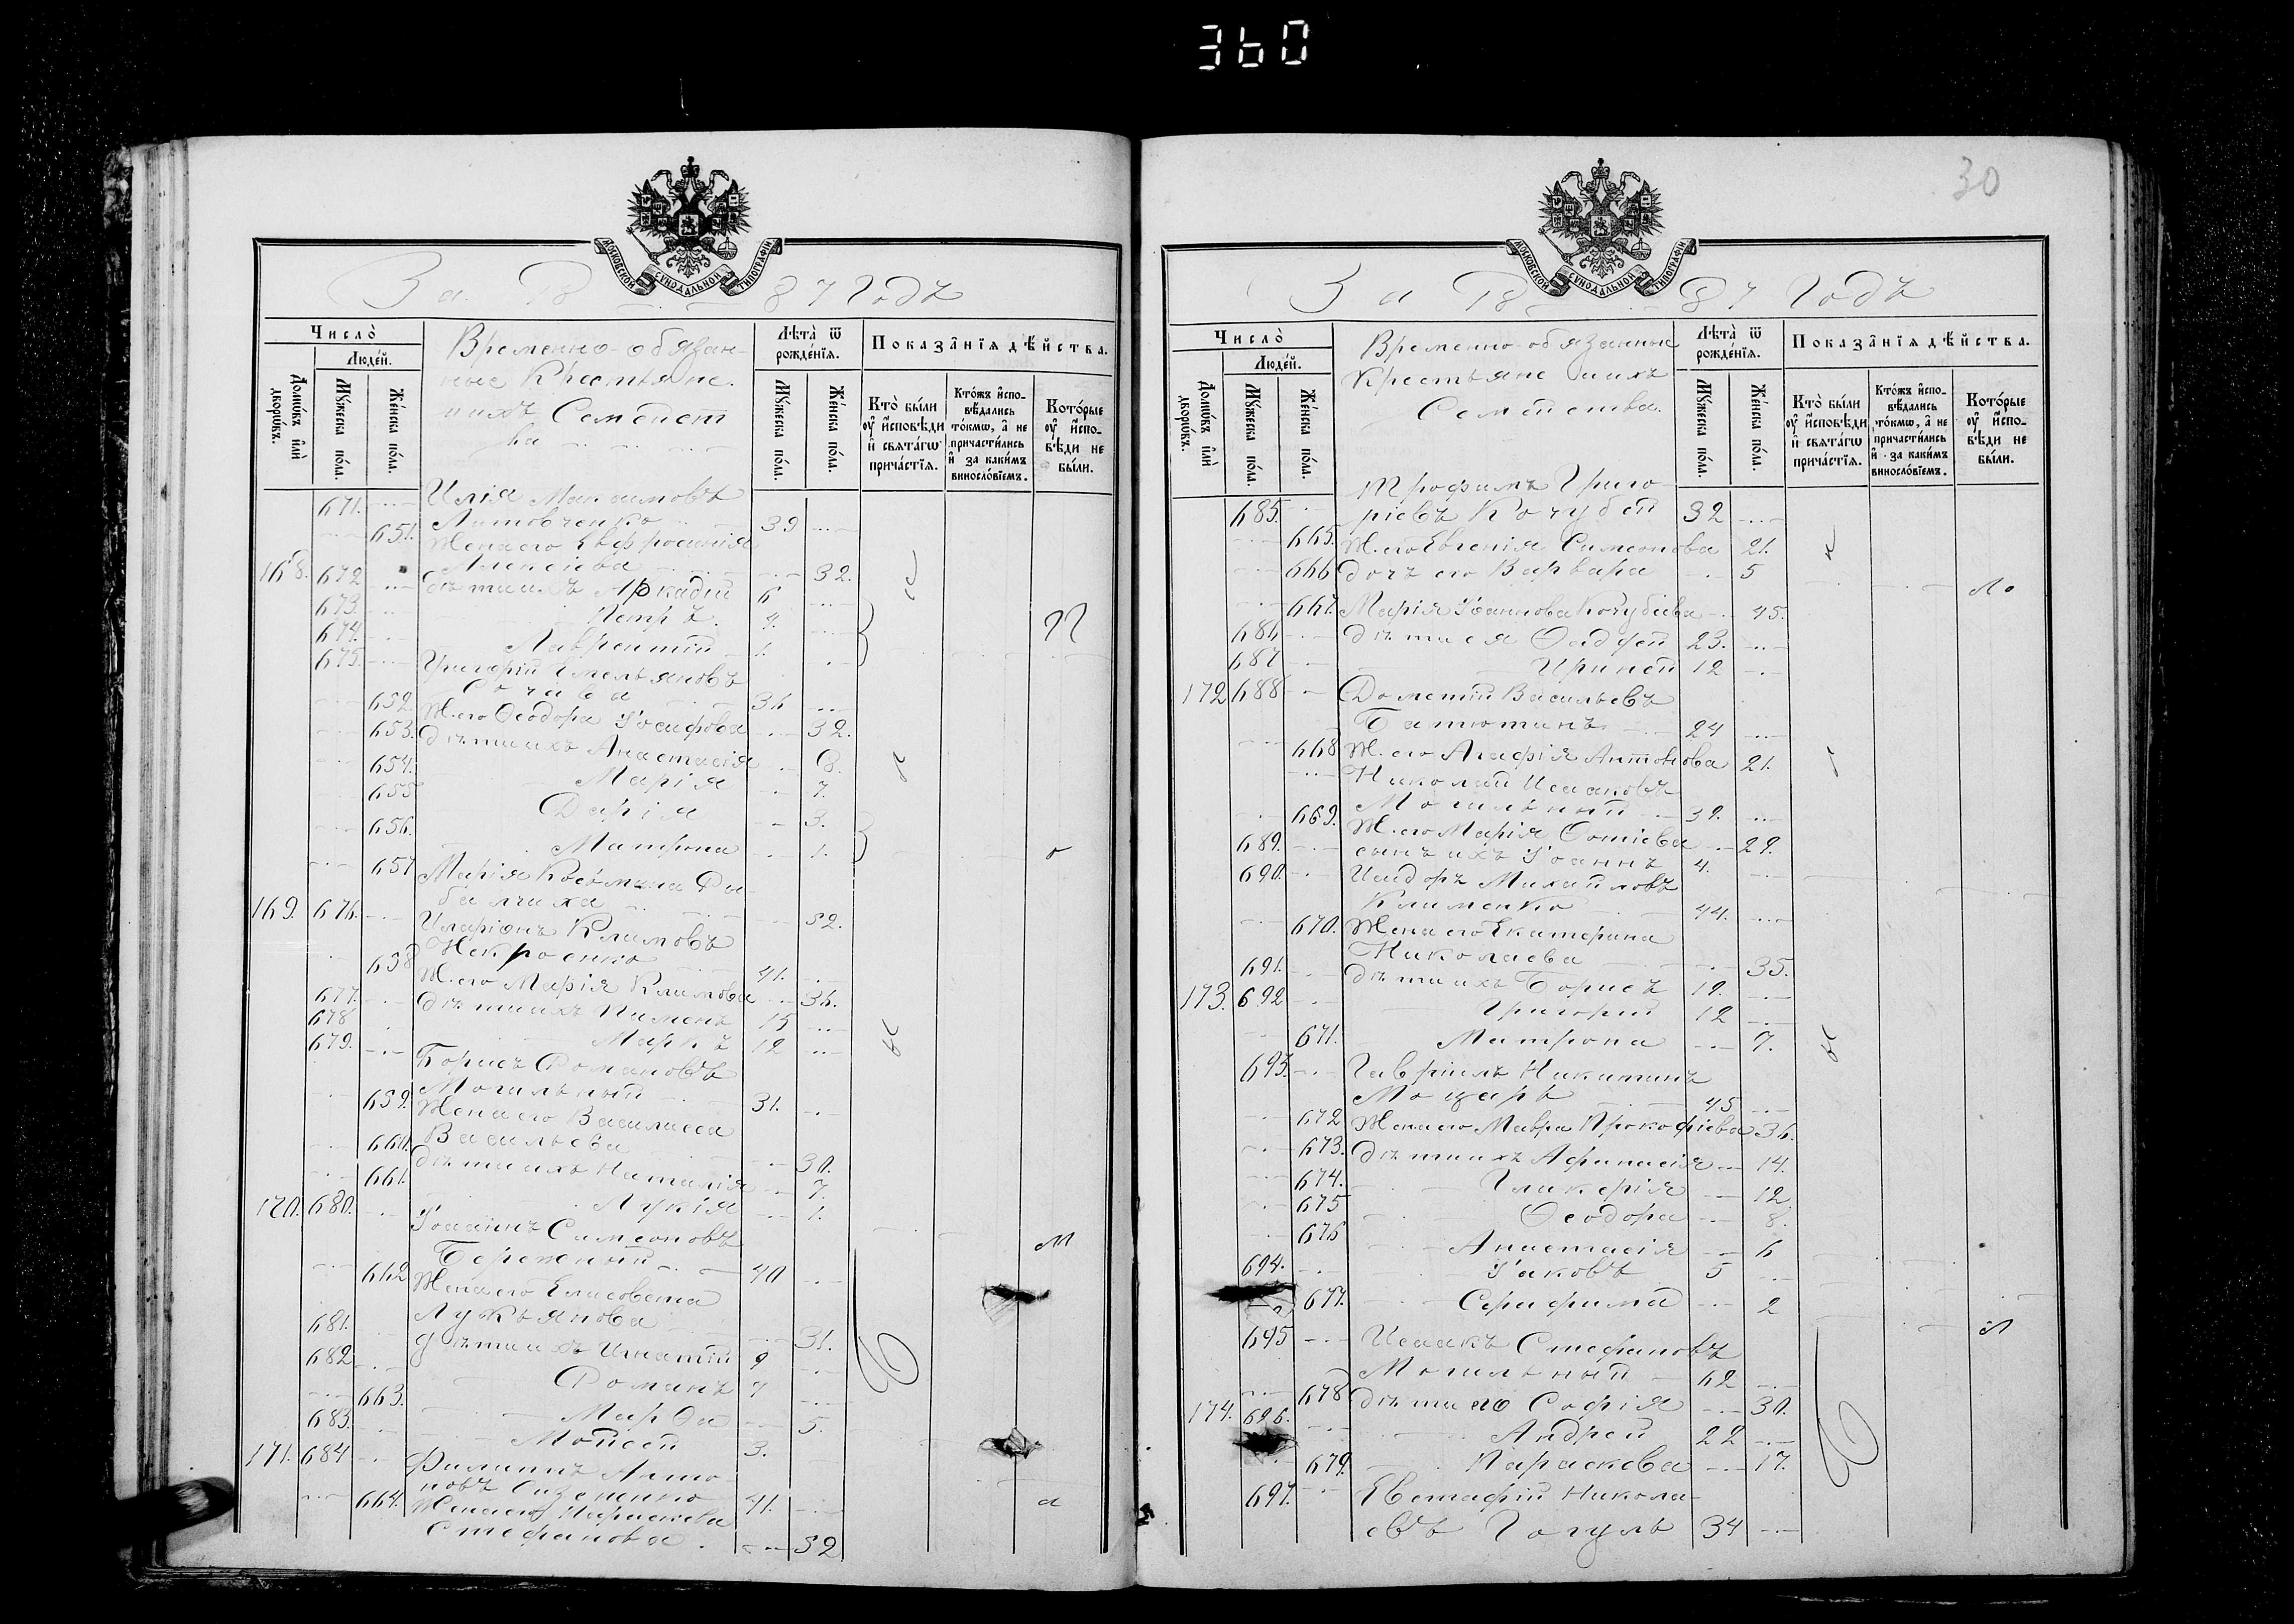 360
30
МОСКОВСКОЙ СУНОДАЛЬНОЙ ТИПОГРАФІИ
За 18 87 Годъ
Число̀
Людей.
Домѡвъ и҆лѝ дворѡвъ.
Мꙋ́жеска по́ла.
Же́нска по́ла.
Временно-обязан-
ные Крестьяне.
и ихъ Семейст
ва
Лѣта̀ ѿ рожде́нїѧ.
Мꙋ́жеска по́ла.
Же́нска по́ла.
Показа̂нїѧ дѣ́йства.
Кто̀ бы́ли оу҆ и҆сповѣ́ди и҆ свѧта́гѡ прича́стїѧ.
Кто́жъ и҆спо-вѣ́дались то́кмѡ, а҆ не причасти́лись и҆ за каки́мъ винословїемъ.
Кото́рые оу҆ и҆спо-вѣ́ди не бы́ли.
671. Илія Максимовъ
Литовченко 39
651. Жена его Евфросинія
Алексіева 32.
168. 672 дѣти ихъ Аркадій 6
673. Петръ. 4.
674. Лаврентій 1.
675. Григорій Емельяновъ
Сочава 36
652. Ж. его Ѳеодора Іосифова 32.
653. дѣти ихъ Анастасія 8.
654. Марія 7.
655 Дарія 3.
656. Матрона 1.
657 Марія Косьмина Ря-
бчиха 52.
169. 676. Иларіонъ Климовъ
Некроенко 41.
658 Ж. его Марія Климова 36.
677. дѣти ихъ Пименъ 15
678 Маркъ 12
679. Борисъ Романовъ
Могильный 31.
659. Жена его Василисса
Васильева 30.
660. дѣти ихъ Наталія 7.
661. Лукія 1.
170. 680. Іоакимъ Симеоновъ
Бережный 40
662 Жена его Елисовета
Лукьянова 31.
681. дѣти ихъ Игнатій 9
682 Романъ 7
663. Марѳа 5.
683. Моисей 3.
171. 684 Филиппъ Анто
новъ 41.
664. Жена его Параскева
Стефанова. 52
За 18 87 Годъ
Число̀
Людей.
Домѡвъ и҆лѝ дворѡвъ.
Мꙋ́жеска по́ла.
Же́нска по́ла.
Временно-обязанныи
Крестьяне и ихъ
Семейства.
Лѣта̀ ѿ рожде́нїѧ.
Мꙋ́жеска по́ла.
Же́нска по́ла.
Показа̂нїѧ дѣ́йства.
Кто̀ бы́ли оу҆ и҆сповѣ́ди и҆ свѧта́гѡ прича́стїѧ.
Кто́жъ и҆спо-вѣ́дались то́кмѡ, а҆ не причасти́лись и҆ за каки́мъ винословїемъ.
Кото́рые оу҆ и҆спо-вѣ́ди не бы́ли.
Трофимъ Григо-
685. ріевъ Кочубей 32
665. Ж. его Евгенія Симеонова 21.
666 дочь его Варвара 5
667. Марія Іоаннова Кочубіева 45.
686 дѣти ея Ѳаддей 23.
687 Ириней 12
172 688 Дометій Васильевъ
Батютинъ 24
668 Ж. его Агафія Антонова 21.
Николай Исааковъ
Могильный 32.
669. Ж. его Марія Фотіева 29.
689. сынъ ихъ Іоаннъ 4.
690. Исидоръ Михайловъ
Клименко 44.
670. Жена его Екатерина
Николаева 35.
691. дѣти ихъ Борисъ 12.
173. 692 Григорій 12
671. Матрона 7.
693. Гавріилъ Никитинъ
Моцарь 45
672 Жена его Мавра Прокофіева 36.
673. дѣти ихъ Афанасія 14.
674. Гликерія 12
675 Ѳеодора 8.
676 Анастасія 6
694. Іаковъ 5
677. Серафима 2
695 Исаакъ Стефановъ
Могильный 62
678 дѣти его Софія 30.
174. 696. Андрей 22
679. Параскева 17.
697. Евстафій Никола-
евъ Гогуль 34